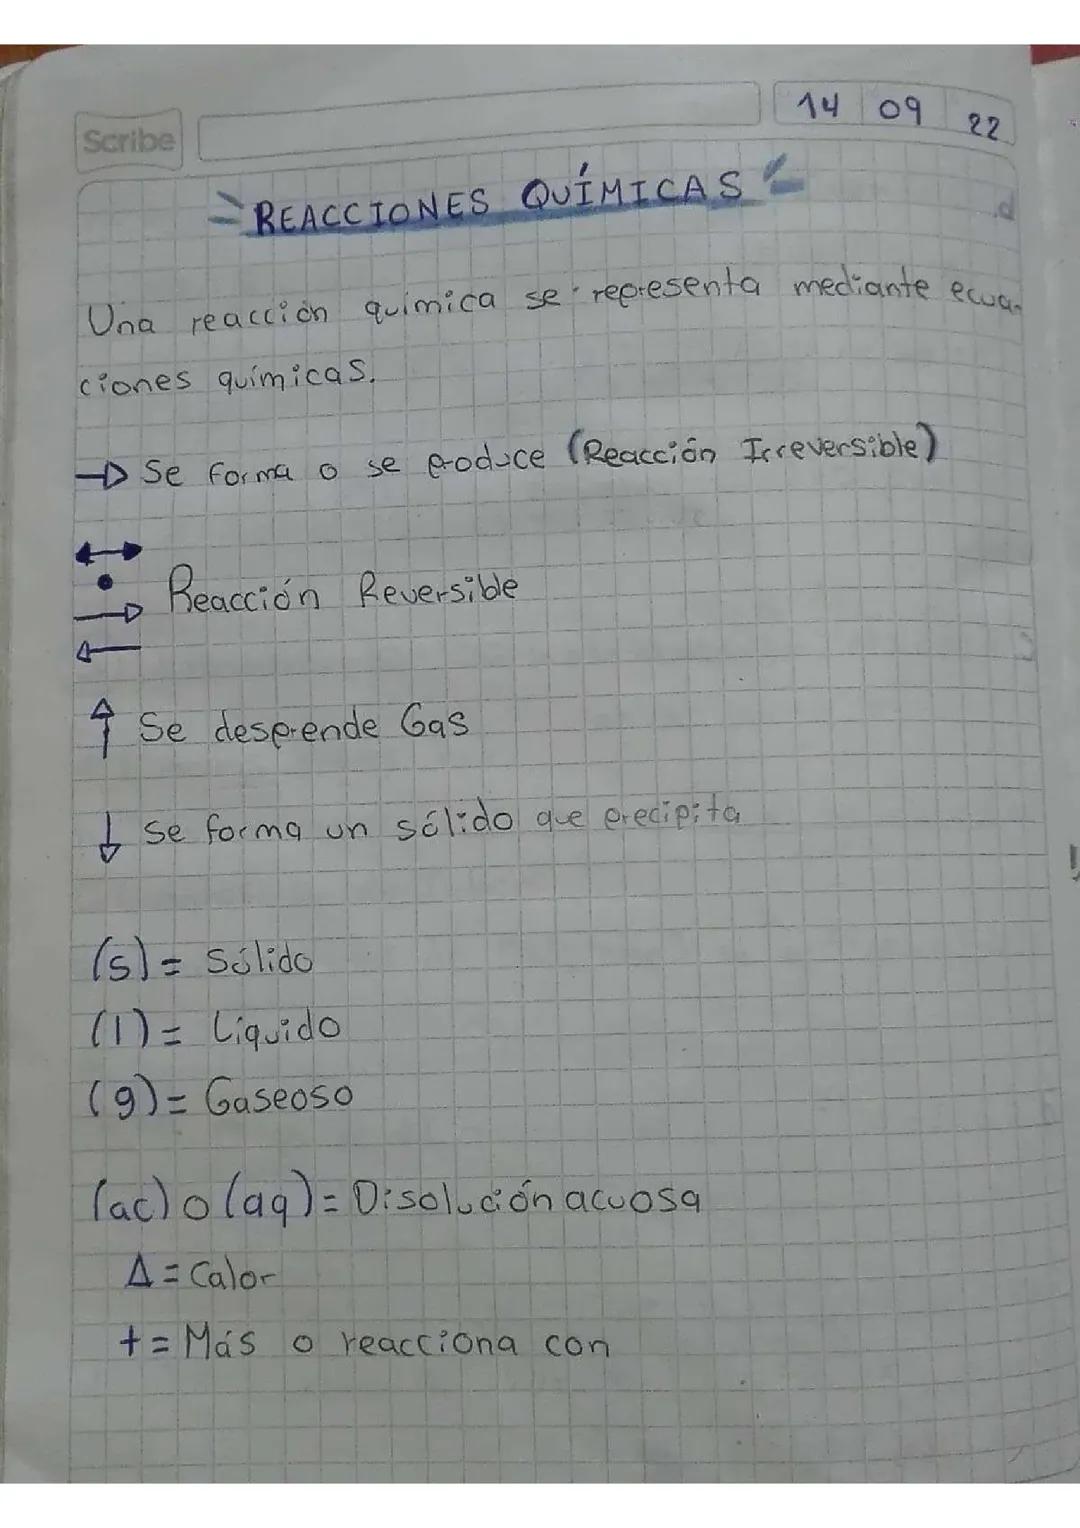 Scribe
14 09 22
REACCIONES QUÍMICAS
Una reacción química se representa mediante ecua-
ciones químicas.
→ Se forma o se produce (Reacción Irreversible)
↔
•
→ Reacción Reversible
←
↑ Se desprende Gas
↓ Se forma un sólido que precipita
(s) = Sólido
(l) = Líquido
(g) = Gaseoso
(ac) o (aq) = Disolución acuosa
Δ = Calor
+ = Más o reacciona con